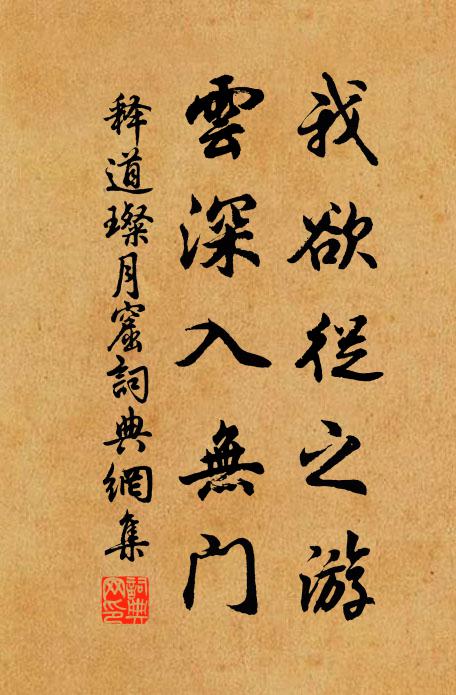 我欲從之游
雲深入無門
释道璨月窟詞典網集
詞典網印